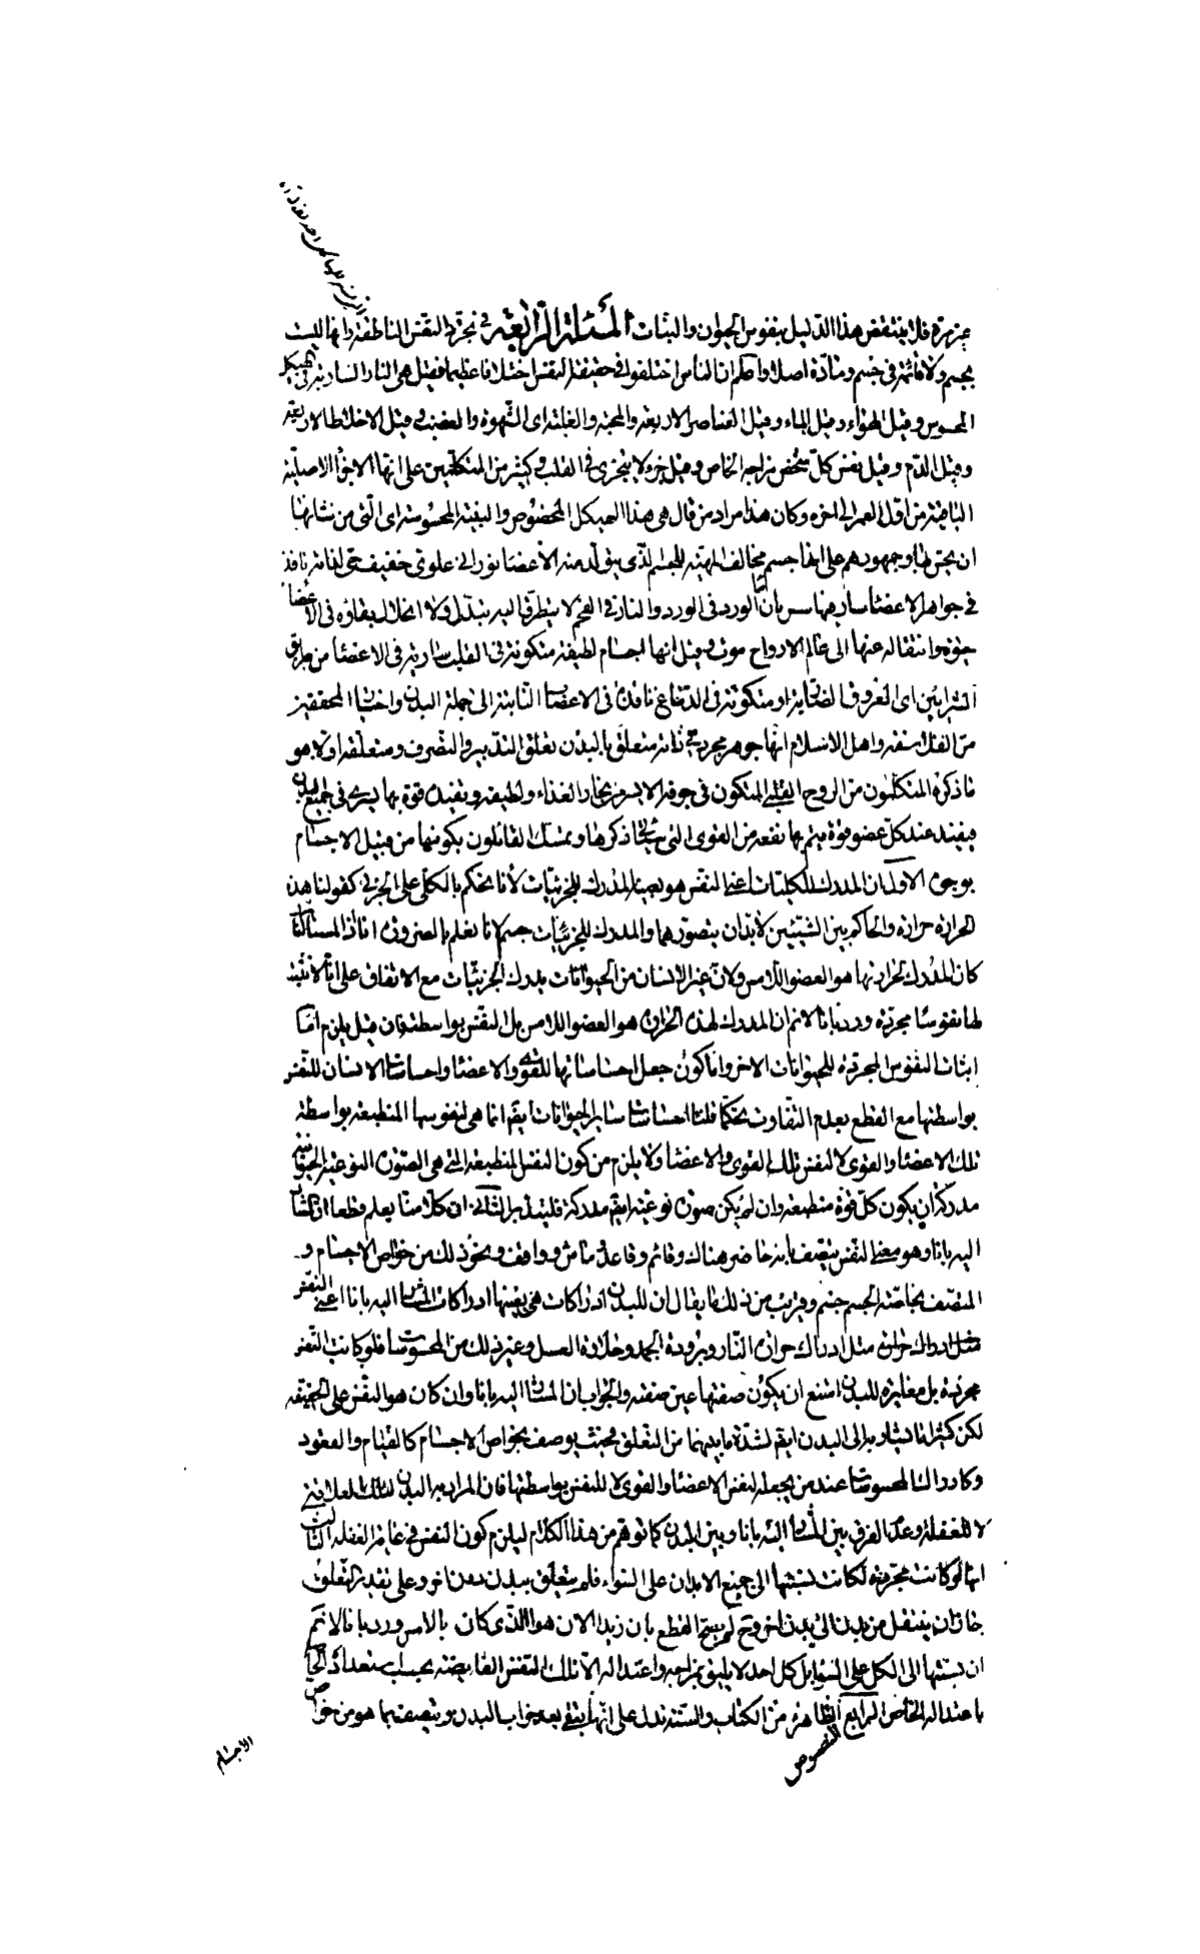 عزيزة فلا ينتقض هذا الدليل بنفوس الحيوان والنبات المسئلة الرابعة في تجرد النفس الناطقة وانها ليست
بجسم ولا قائمة في جسم ومادة اصلا واعلم ان الناس اختلفوا في حقيقة النفس اختلافا عظيما فقيل هي النار السارية في الهيكل
المحسوس وقيل الهواء وقيل الماء وقيل العناصر الاربعة والمحبة والغلبة اى الشهوة والغضب وقيل الاخلاط الاربعة
وقيل الدم وقيل نفس كل شخص مزاجه الخاص وقيل جزء لا يتجزى في القلب وكثير من المتكلمين على انها الاجزاء الاصلية
الباقية من اول العمر الى اخره وكان هذا مراد من قال هي هذا الهيكل المخصوص والبنية المحسوسة اى التي من شانها
ان يحس بها وجمهورهم على انها جسم مخالف الماهية للجسم الذى يتولد منه الاعضا نورانى علوى خفيف حى لذاته نافذ
في جواهر الاعضا سار فيها سريان ماء الورد فى الورد والنار في الفحم لا يتطرق اليه تبدل ولا انحلال بقاؤه فى الاعضا
حيوة وانتقاله عنها الى عالم الارواح موت وقيل انها اجسام لطيفة متكونة فى القلب سارية فى الاعضا من طريق
الشرايين اى العروق الضاربة او متكونة فى الدماغ نافذة فى الاعصاب النابتة الى جملة البدن واختيار المحققين
من الفلاسفة واهل الاسلام انها جوهر مجرد في ذاته متعلق بالبدن تعلق التدبير والتصرف ومتعلقه اولا هو
ما ذكره المتكلمون من الروح القلبى المتكون فى جوفه الايسر من بخار الغذاء ولطيفه ويفيده قوة بها يسرى فى جميع البدن
فيفيد عند كل عضو قوة يتم بها نفعه من القوى التى ذكرها وتمسك القائلون بكونها من قبيل الاجسام
بوجوه الاول ان المدرك للكليات اعنى النفس هو بعينه المدرك للجزئيات لانا نحكم بالكلى على الجزئى كقولنا هذه
الحرارة حرارة والحاكم بين الشيئين لابد ان يتصورهما والمدرك للجزئيات جسم لانا نعلم بالضرورة انا اذا لمسنا النار
كان المدرك لحرارتها هو العضو اللامس ولان غير الانسان من الحيوانات يدرك الجزئيات مع الاتفاق على انا لا نثبت
لها نفوسا مجردة ورد بانا لا نم ان المدرك لهذه الحرارة هو العضو اللامس بل النفس بواسطته فان قيل يلزم اما
اثبات النفوس المجردة للحيوانات الاخر واما كون جعل احساساتها للقوى والاعضا واحساسات الانسان للنفس
بواسطتها مع القطع بعدم التفاوت تحكما قلنا احساسات ساير الحيوانات ايضم انما هى لنفوسها المنطبعة بواسطة
تلك الاعضا والقوى لا لنفس تلك القوى والاعضا ولا يلزم من كون النفس المنطبعة التى هى الصورة النوعية الحيوانية
مدركة ان يكون كل قوة منطبعة وان لم يكن صورة نوعية ايضم مدركة فليتدبر الثانى ان كلا منا يعلم قطعا ان المشار
اليه بانا وهو معنى النفس يتصف بانه حاضر هناك وقائم وقاعد وماش وواقف ونحو ذلك من خواص الاجسام و
المتصف بخاصة الجسم جسم وقريب من ذلك ما يقال ان للبدن ادراكات هى بعينها ادراكات المشار اليه بانا اعنى النفس
مثل ادراك حرارة النار وبرودة الجمد وحلاوة العسل وغير ذلك من المحسوسات فلو كانت النفس
مجردة بل مغايرة للبدن امتنع ان يكون صفتها عين صفته والجواب ان المشار اليه بانا وان كان هو النفس على الحقيقة
لكن كثيرا ما يشار به الى البدن ايضم لشدة ما بينهما من التعلق فحيث يوصف بخواص الاجسام كالقيام والقعود
وكادراك المحسوسات عند من يجعله لنفس الاعضا والقوى لا للنفس بواسطتها فان المراد به البدن
لا للغفلة وعدم الفرق بين المشار اليه بانا وبين البدن كما توهم من هذا الكلام ليلزم كون النفس في غاية الغفلة الثالث
انها لو كانت مجردة لكانت نسبتها الى جميع الابدان على السواء فلم يتعلق ببدن دون اخر وعلى تقدير التعلق
جاز ان ينتقل من بدن الى بدن اخر وح لم يصح القطع بان زيدا الان هو الذى كان بالامس ورد بانا لا نم
ان نسبتها الى الكل على السواء بل كل احد لا يليق بمزاجه واعتداله الا تلك النفس الفايضة بحسب استعداده الحاصل
باعتداله الخاص الرابع النصوص الظاهرة من الكتاب والسنة تدل على انها تبقى بعد خراب البدن ويتصف بما هو من خواص
الاجسام